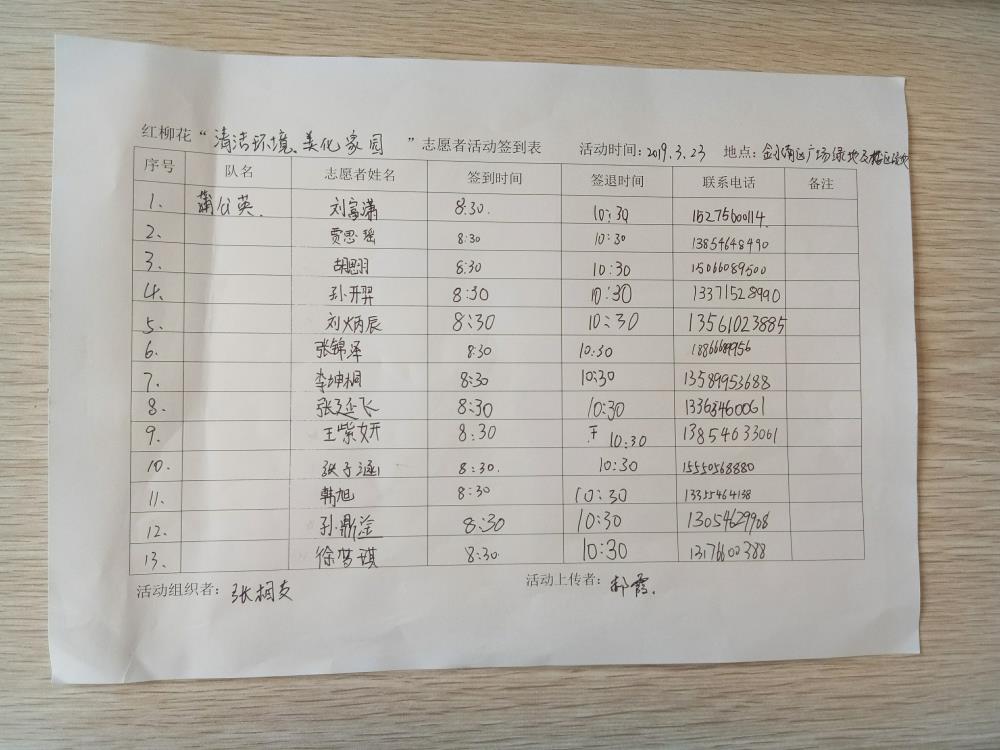 红柳花“清洁环境、美化家园”志愿者活动签到表 活动时间:2019.3.23 地点:金水湾区广场绿地及
序号 队名 志愿者姓名 签到时间 签退时间 联系电话 备注
1. 蒲公英. 刘富潇 8:30. 10:30 15275600114
2. 贾思瑶 8:30 10:30 13854648490
3. 胡翾 8:30 10:30 15066089500
4. 孙开羿 8:30 10:30 13371528990
5. 刘炳辰 8:30 10:30 13561023885
6. 张锦泽 8:30 10:30
7. 李坤桐 8:30 10:30 13589953688
8. 张延飞 8:30 10:30 13363460061
9. 王紫妍 8:30 10:30 13854633061
10. 张子涵 8:30. 10:30 15550568880
11. 韩旭 8:30 10:30 13355464138
12. 孙鼎淦 8:30 10:30 13054629908
13. 徐梦琪 8:30. 10:30 13176600388
活动组织者:张桐爽 活动上传者:郝霞.